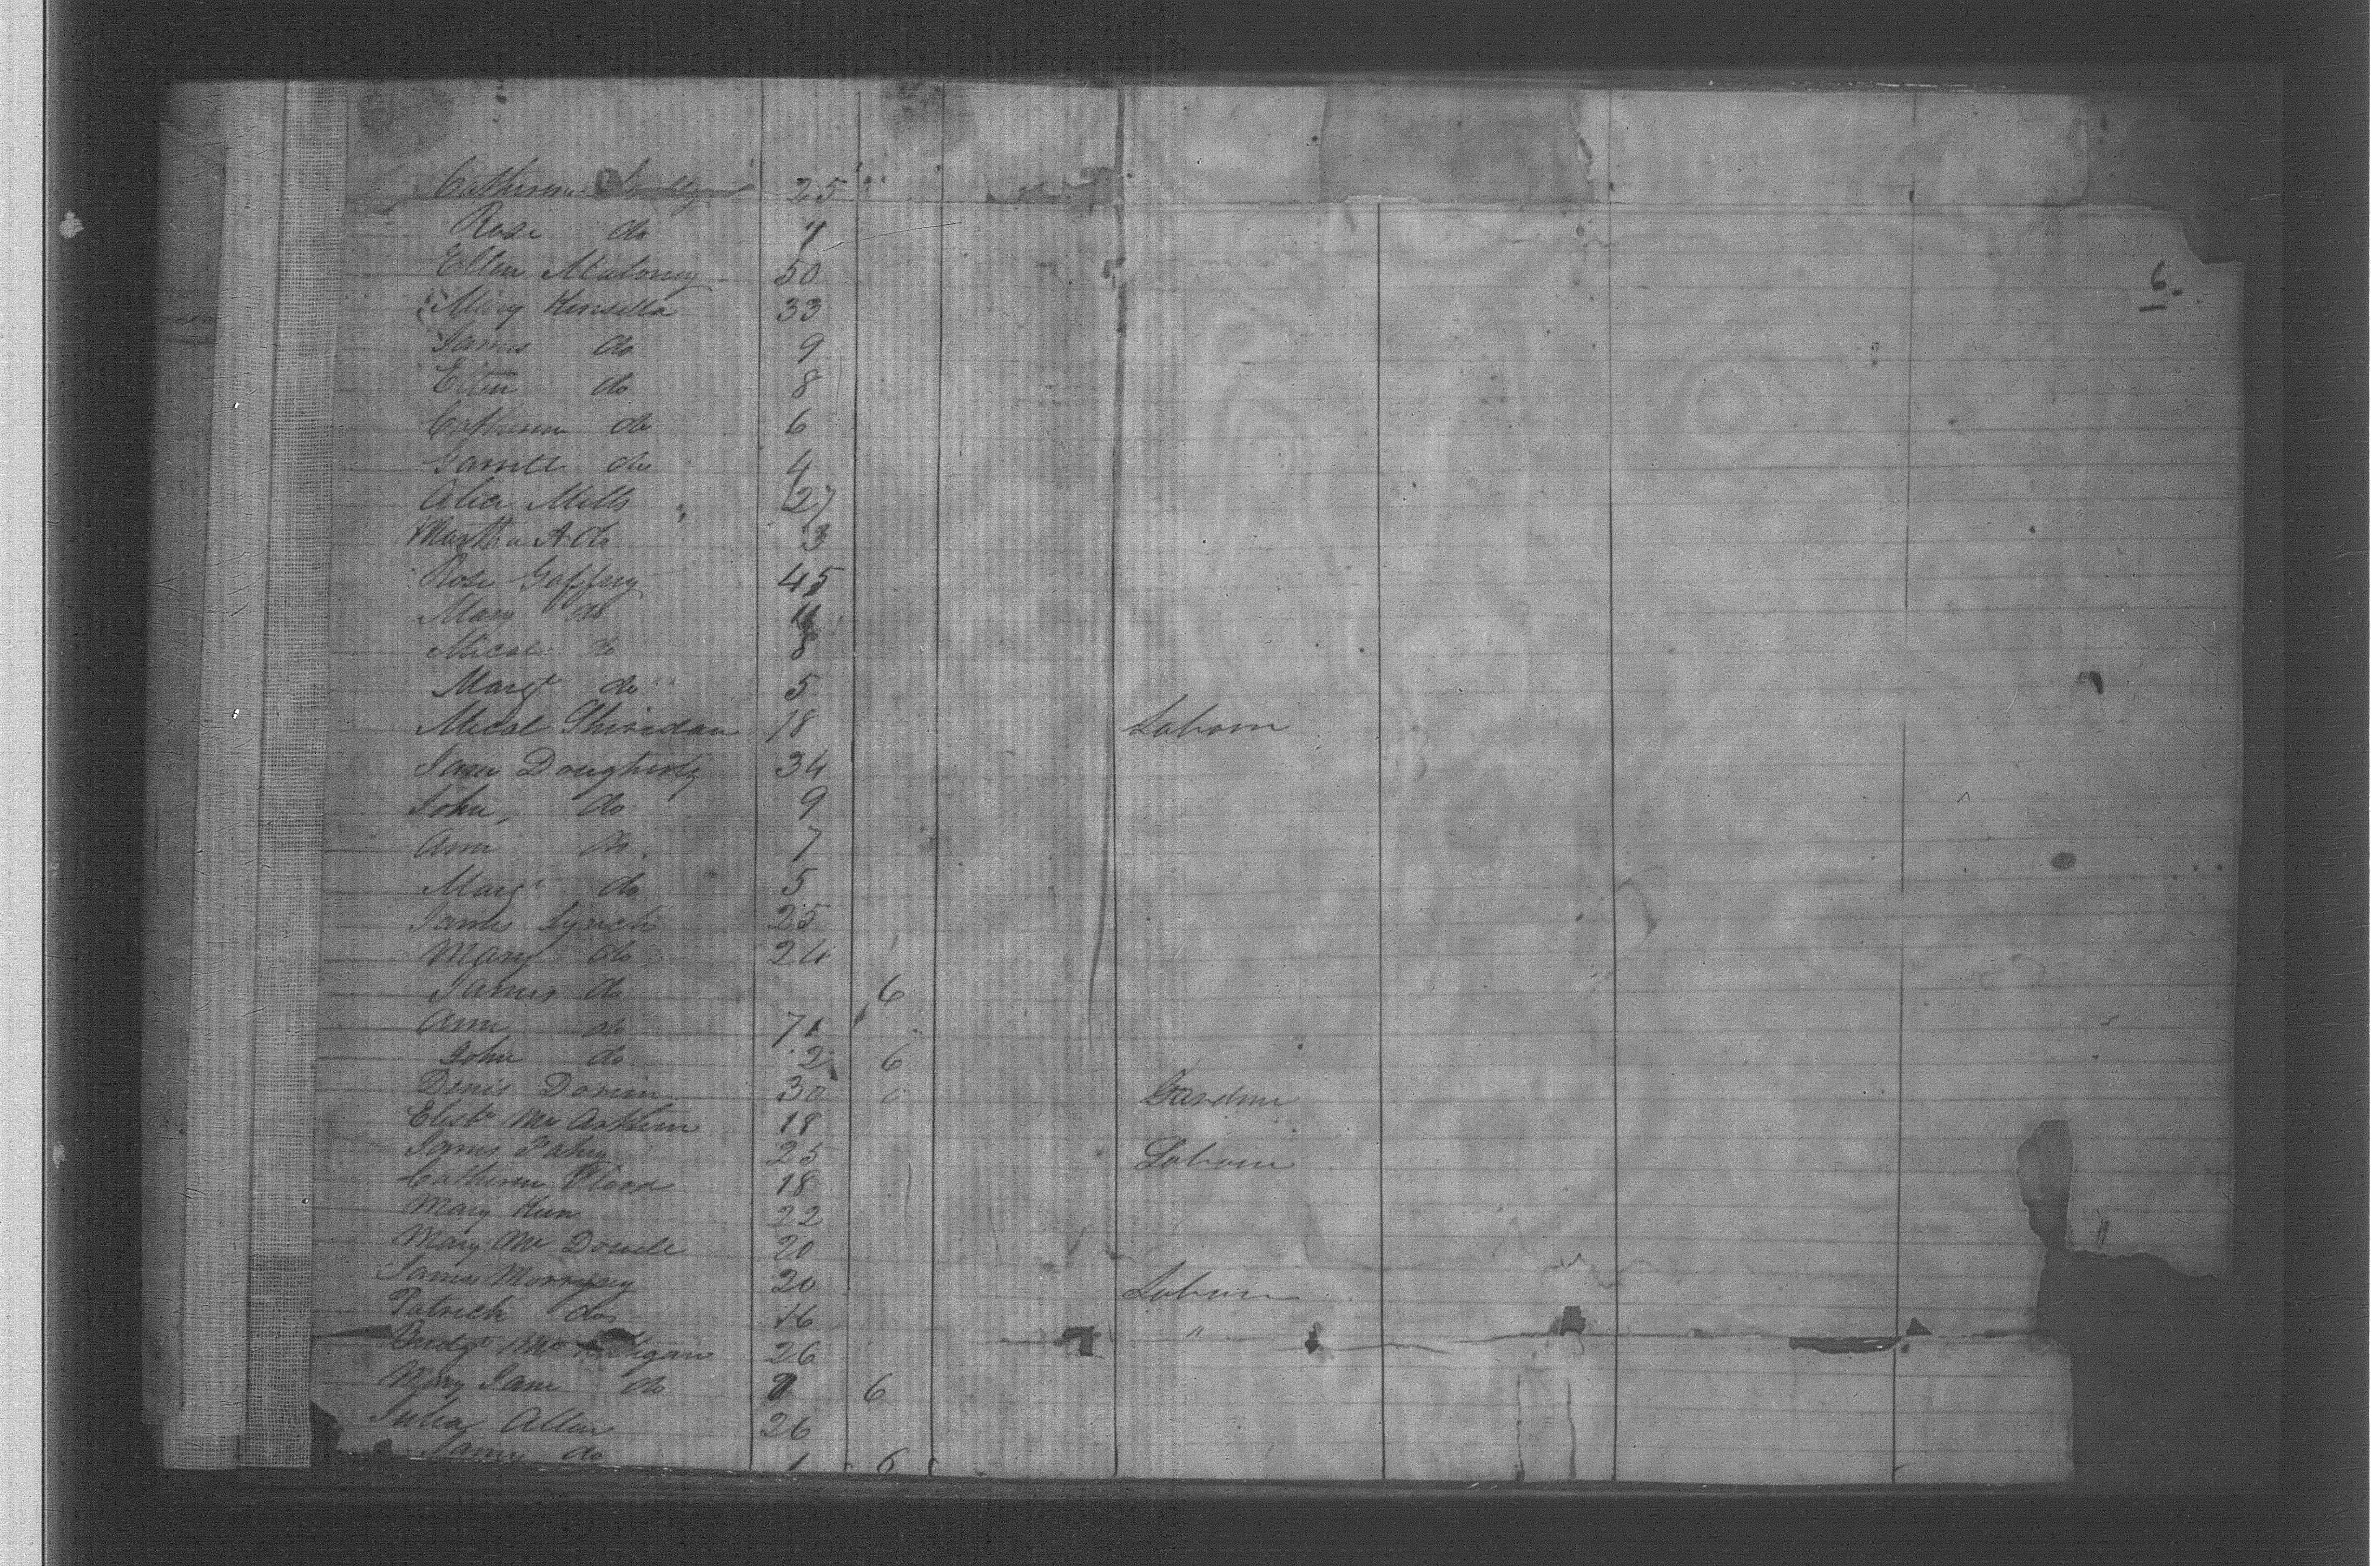 Catherine 25
Rose do 4
6.
Ellen Maloney 50
Mary Kinsella 33
James do 9
Ellen do 8
Catherin do 6
Garrett do 4
Alice Mills " 27
Martha A do 3
Rose Gaffney 45
Mary do
Mical do 8
Margt do 5
Mical Shiridan 18 Laborer
Jane Dougherty 34
John, do 9
Ann do 7
Margt do 5
James Lynch 25
Mary do 24
James do 6
Ann do 71
John do 2 6
Denis Dorin 30 Gardner
Elisbt Mc Arthur 18
James Fahey 25 Laborer
Catherin Flood 18
Mary Kern 22
Mary Mc Dowell 20
James Morrissey 20 Laborer
Patrick do 16 "
Bridgt Mc 26
Mary Jane do 6
Julia Allen 26
James do 1 6